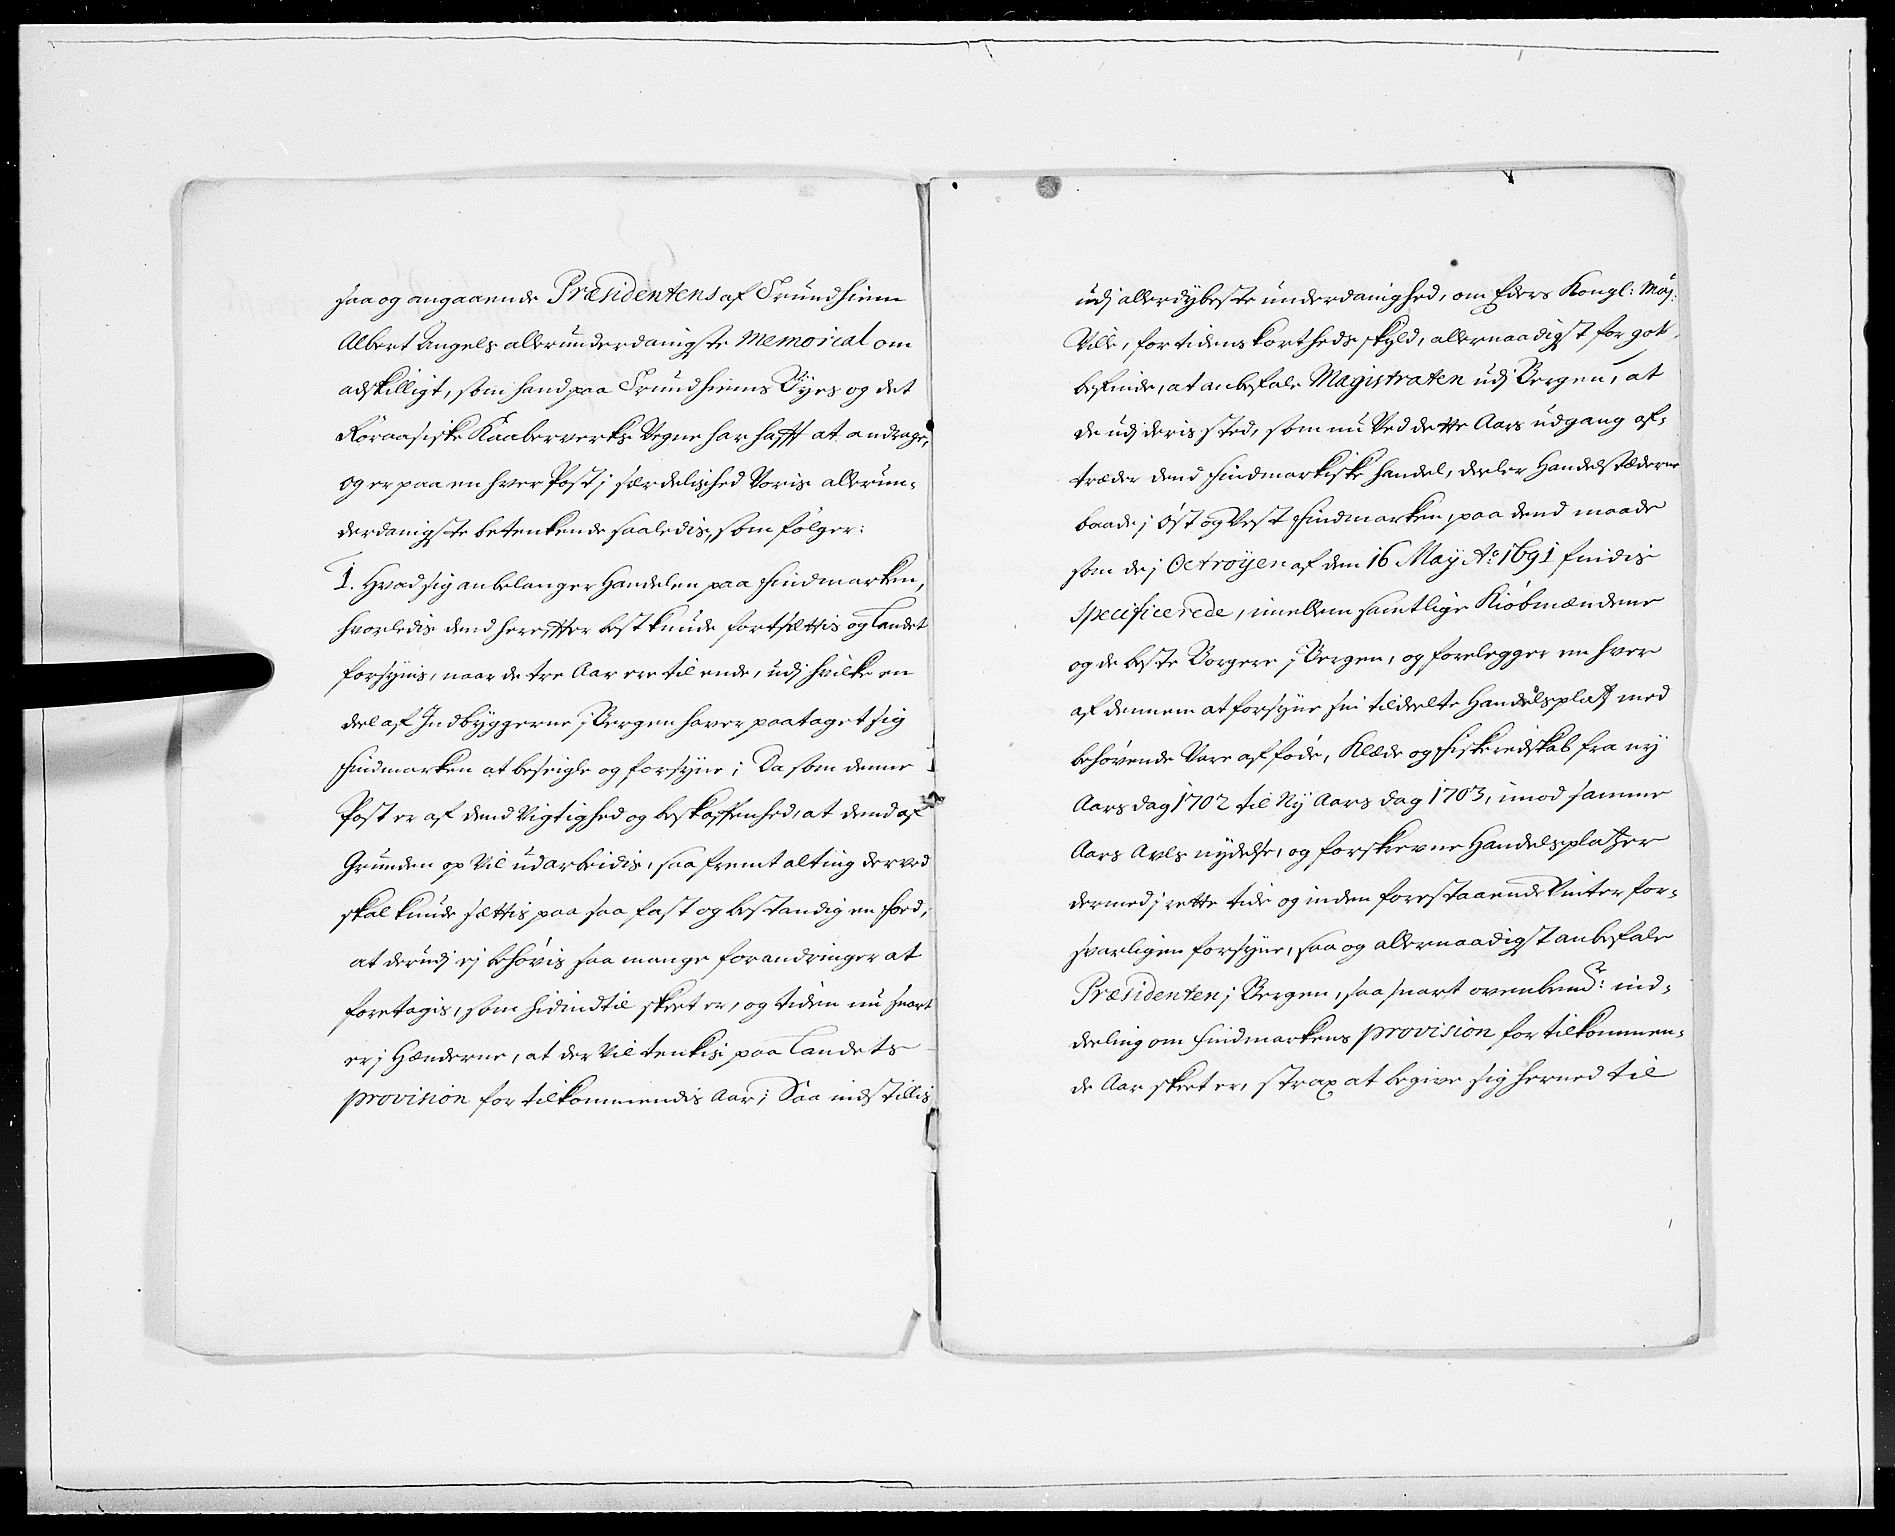 saa og angaaende Præsidentens af Trundhiem
Albert Angels allerunderdanigste Memorial om
adskilligt, som hand paa Trundhiems Byes og det
Röraasiske Kaaberverks Vegne har hafft at andrage,
og er paa en hver Post j særdelished Voris allerun-
derdanigste betenkende saaledis, som fölger:
1. Hvad sig anbelanger Handelen paa Findmarken,
hvorledis dend herefter best kunde fortsættis og Landet
forsynis, naar de tre Aar ere til ende, udj hvilke en
deel af Indbyggerne j Bergen haver paataget sig
Findmarken at beseigle og forsyne; Da som denne
Post er af dend Vigtighed og beskaffenhed, at dend af
Grunden op Vil udarbeidis, saa fremt alting derved
skal kunde sættis paa saa fast og bestandig en Foed,
at derudj ej behövis saa mange forandringer at
foretagis, som hidindtil skeet er, og tiden nu snart
er j Hænderne, at der Vil tenkis paa Landets
provision for tilkommendis Aar; Saa indstillis
udj allerdybeste underdanighed, om Eders Kongl: Maj:
Ville, for tidens kortheds skyld, allernaadigst for got
befinde, at anbefale Magistraten udj Bergen, at
de udj deris sted, som nu Ved dette Aars udgang af-
træder dend Findmarkiske Handel, deeler Handelstæderne
baade j Öst og Vest Findmarken, paa dend maade
som de j Octroÿen af den 16 Maÿ Ao 1691 findis
specificerede, imellem samtlige Kiöbmændene
og de beste Borgere j Bergen, og forelegger en hver
af dennem at forsyne sin tildeelte Handelsplatz med
behövende Vare af föde, Klæde og Fiskeredskab fra ny
Aars dag 1702 til Nÿ Aars dag 1703, imod samme
Aars Avls nydelse, og forskrevne Handelsplatzer
dermed j rette tide og inden forestaaende Vinter for-
svarligen forsyne, saa og allernaadigst anbefale
Præsidenten j Bergen, saa snart ovenbemte: ind-
deeling om Findmarkens provision for tilkommen-
de Aar skeet er, strax at begive sig herned til